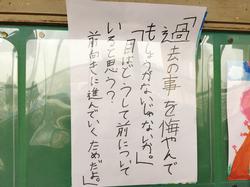 「過去の事を悔やんで
もしょうがないじゃないか。」
「目はどうして前について
いると思う？
前向きに進んでいくためだよ。」